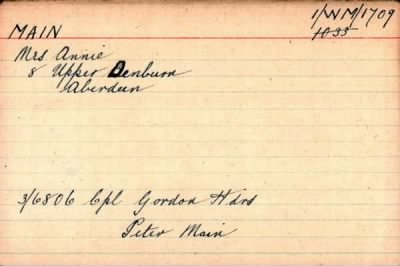 MAIN
1/WM/1709
1035
Mrs Annie
8 Upper Denburn
Aberdeen
3/6806 Cpl Gordon Hdrs
Peter Main